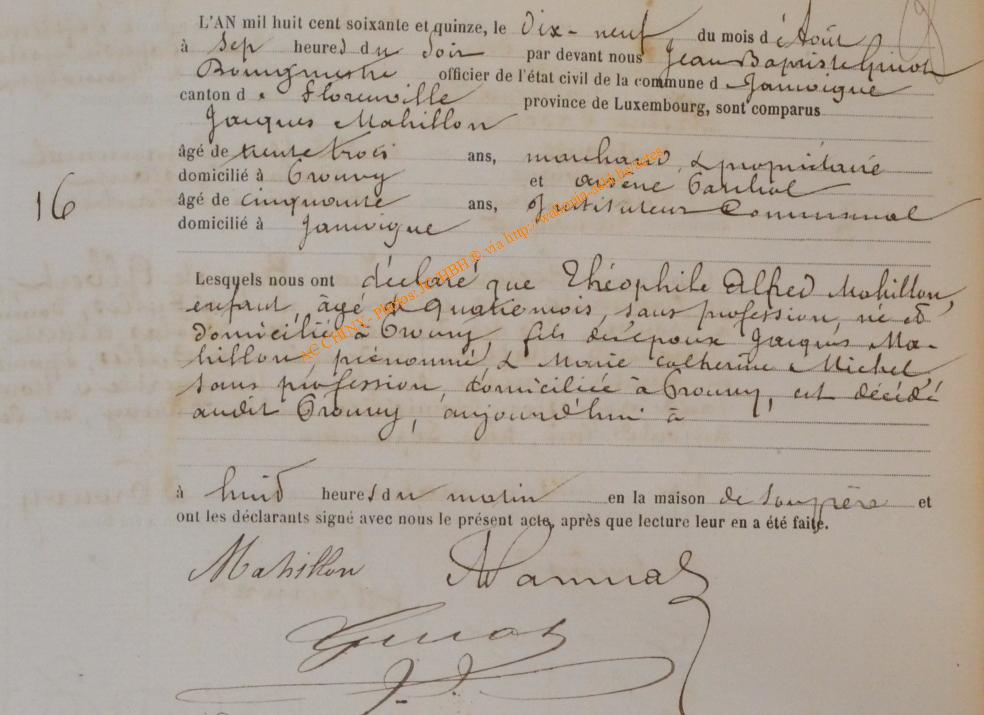 L'AN mil huit cent soixante et quinze, le Dix-neuf du mois d'Août
à sep heures du Soir par devant nous Jean Baptiste
Bourgmestre officier de l'état civil de la commune d Jamoigne
canton d e Florenville province de Luxembourg, sont comparus
Jacques Mahillon
âgé de trente trois ans, marchand, & propriétaire
domicilié à Prouvy et Arsène
âgé de cinquante ans, Instituteur Communal
16
domicilié à Jamoigne
Lesquels nous ont déclaré que Théophile Alfred Mahillon,
enfant, âgé de quatre mois, sans profession, né et
domicilié à Prouvy, fils des époux Jacques Ma-
hillon, prénommé, & Marie Catherine Michel,
sans profession, domiciliée à Prouvy, est décédé
audit Prouvy, aujourd'hui à
à huit heures du matin en la maison de son père et
ont les déclarants signé avec nous le présent acte, après que lecture leur en a été faite.
Mahillon
AC CHINY - Photos: JC HBH ® via http://wallonia-asbl